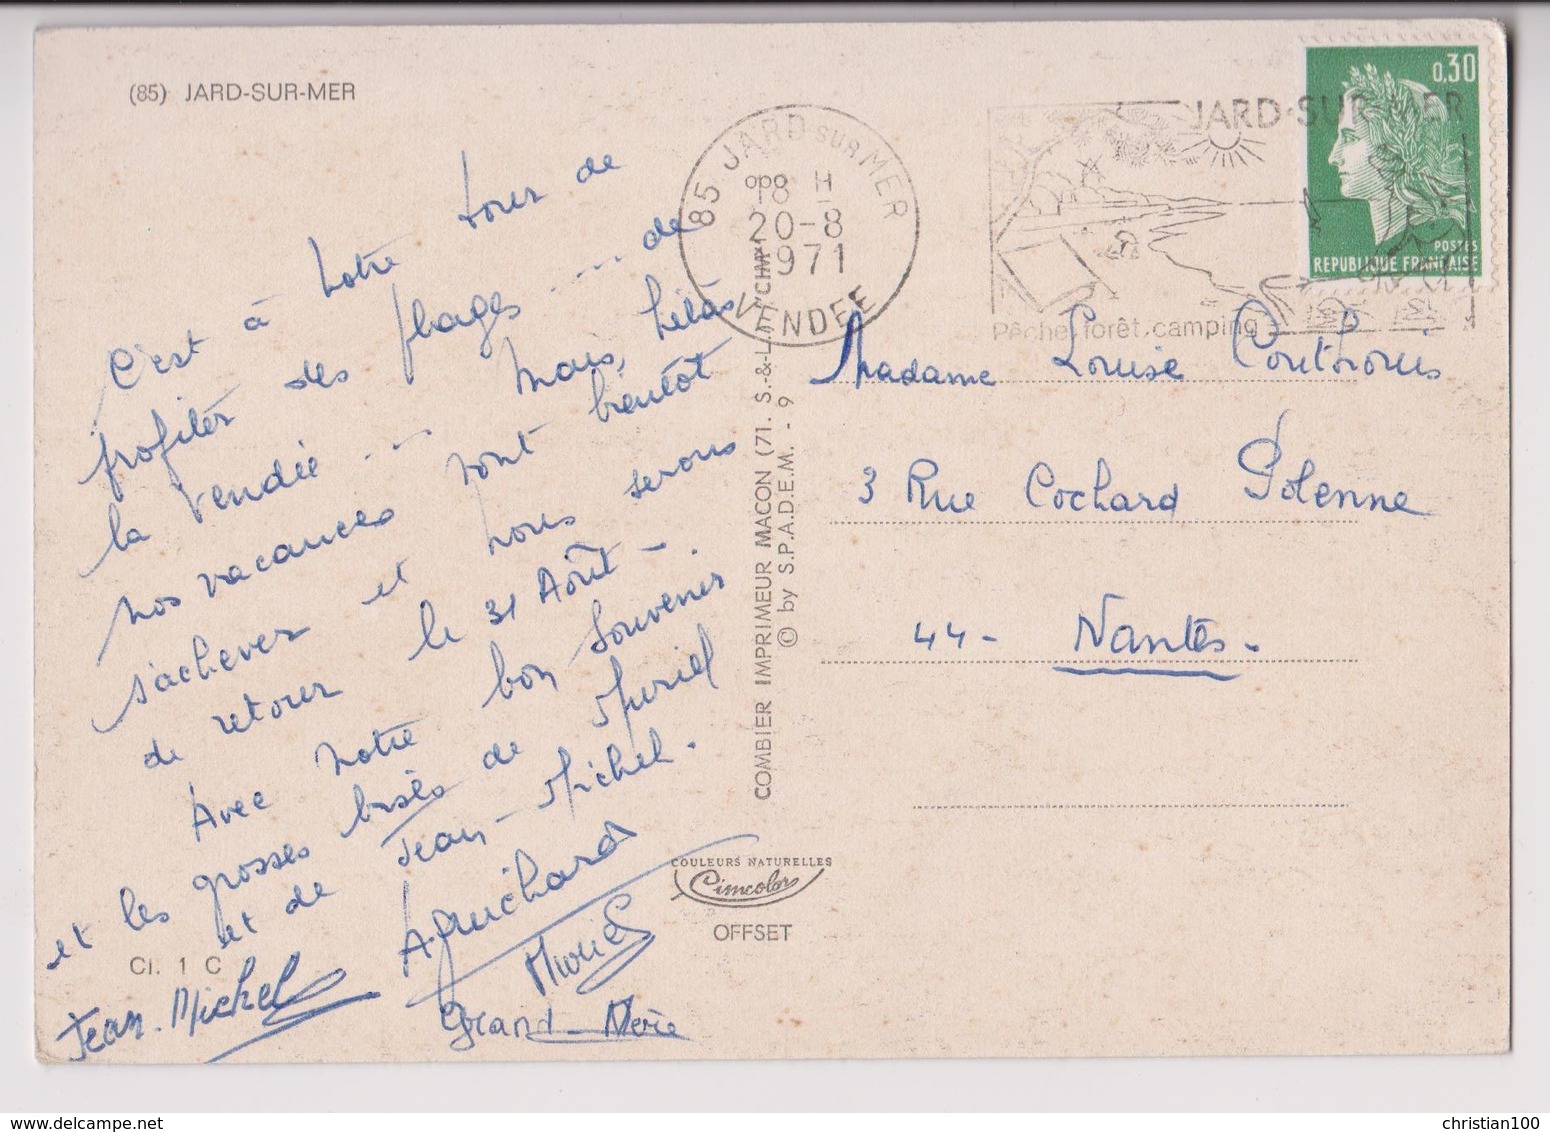 (85) JARD-SUR-MER
C'est à notre tour de
profiter des plages ... de
la Vendée ... Mais, hélas
nos vacances vont bientôt
s'achever et nous serons
de retour le 31 Août -
Avec notre bon souvenir
et les grosses bises de Muriel
et de Jean-Michel.
A. Guichard
Jean-Michel
Muriel
Grand-Mère
Cl. 1 C
COMBIER IMPRIMEUR MACON (71. S.-&-L.) "CIM"
© by S.P.A.D.E.M. - 9
COULEURS NATURELLES
Cimcolor
OFFSET
85 JARD SUR MER
18 H
20-8
1971
VENDEE
JARD-SUR-MER
Pêche, forêt, camping
0,30
POSTES
REPUBLIQUE FRANÇAISE
Madame Louise
3 Rue Cochard
44- Nantes.
christian100